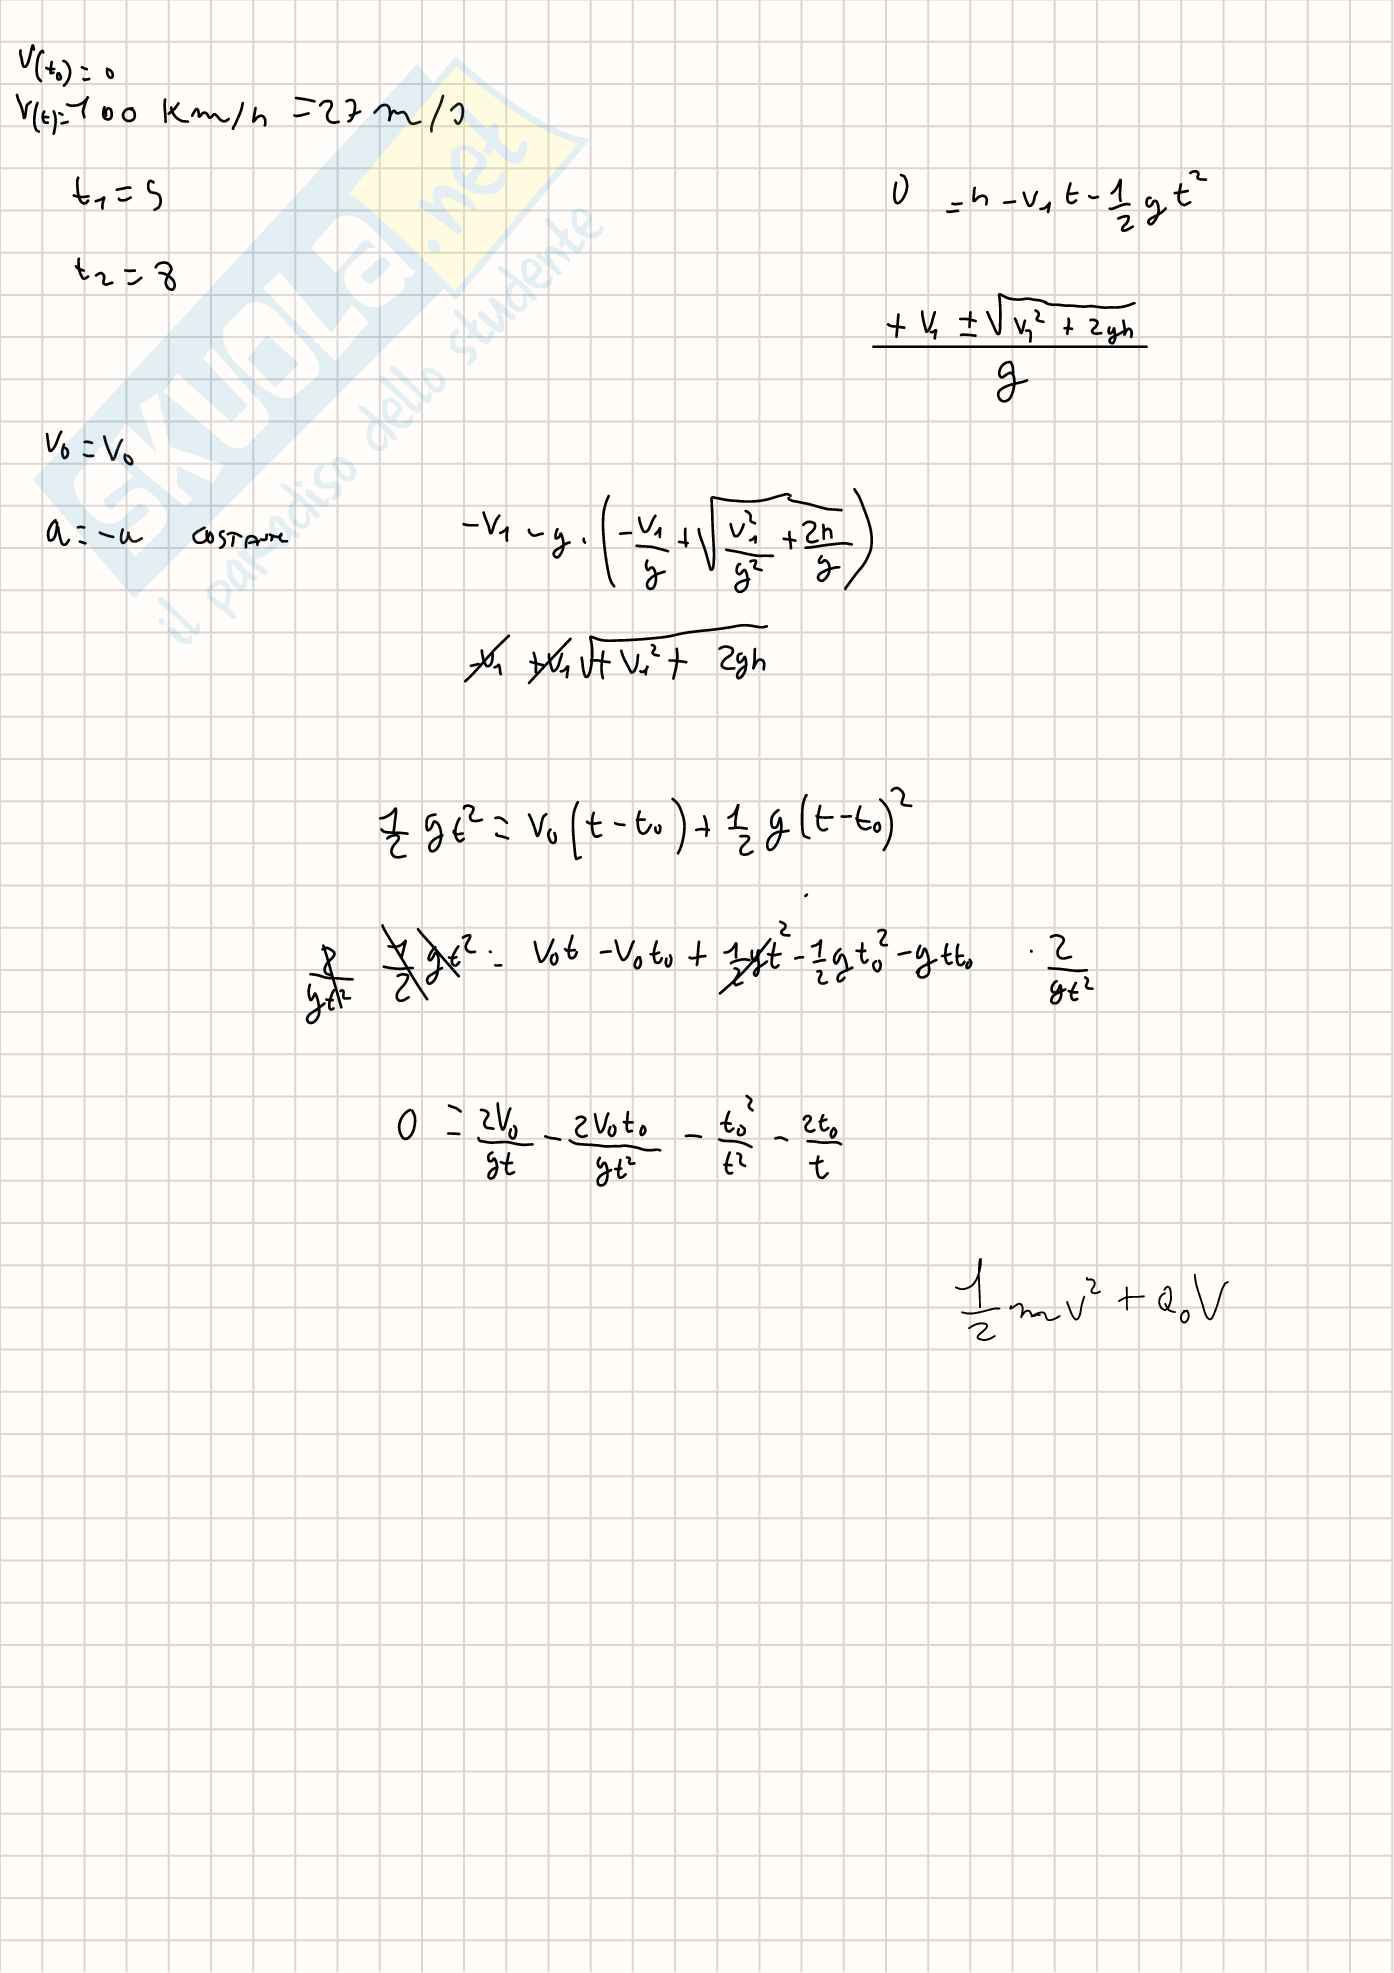 V(t₀) = 0
V(t) = 100 Km/h = 27 m/s
t₁ = 5
t₂ = 8
0 = h - v₁ t - 1/2 g t²
(+ V₁ ± √(v₁² + 2gh)) / g
V₀ = V₀
a = -a COSTANTE
-V₁ - g · (-V₁/g + √(V₁²/g² + 2h/g))
-V₁ +V₁ √(+ V₁² + 2gh)
1/2 g t² = V₀ (t - t₀) + 1/2 g (t - t₀)²
1/2 g t² = V₀t - V₀t₀ + 1/2 g t² - 1/2 g t₀² - g t t₀ · 2/(gt²)
0 = 2V₀/(gt) - 2V₀t₀/(gt²) - t₀²/t² - 2t₀/t
1/2 m v² + Q₀ V
SKUOLA.net
il paradiso dello studente